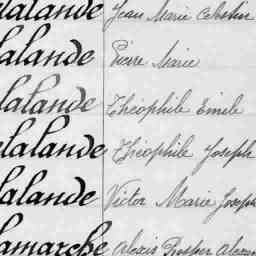 Lalande Jean Marie Célestin
Lalande Pierre Marie
Lalande Théophile Emile
Lalande Théophile Joseph
Lalande Victor Marie Joseph
Lamarche Alexis Prosper